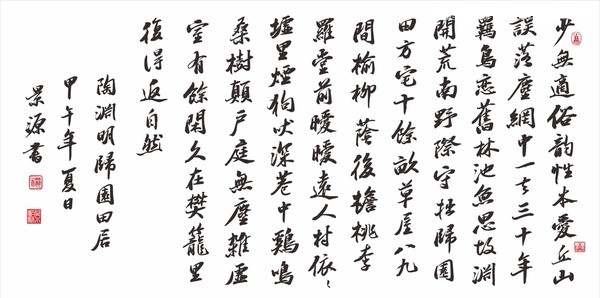 少無適俗韵性本愛丘山
誤落塵網中一去三十年
羈鳥戀舊林池魚思故淵
開荒南野際守拙歸園
田方宅十餘畝草屋八九
間榆柳蔭後檐桃李
羅堂前曖曖遠人村依〻
墟里煙狗吠深巷中鷄鳴
桑樹顛戶庭無塵雜虛
室有餘閑久在樊籠里
復得返自然
陶淵明歸園田居
甲午年夏日
景源書